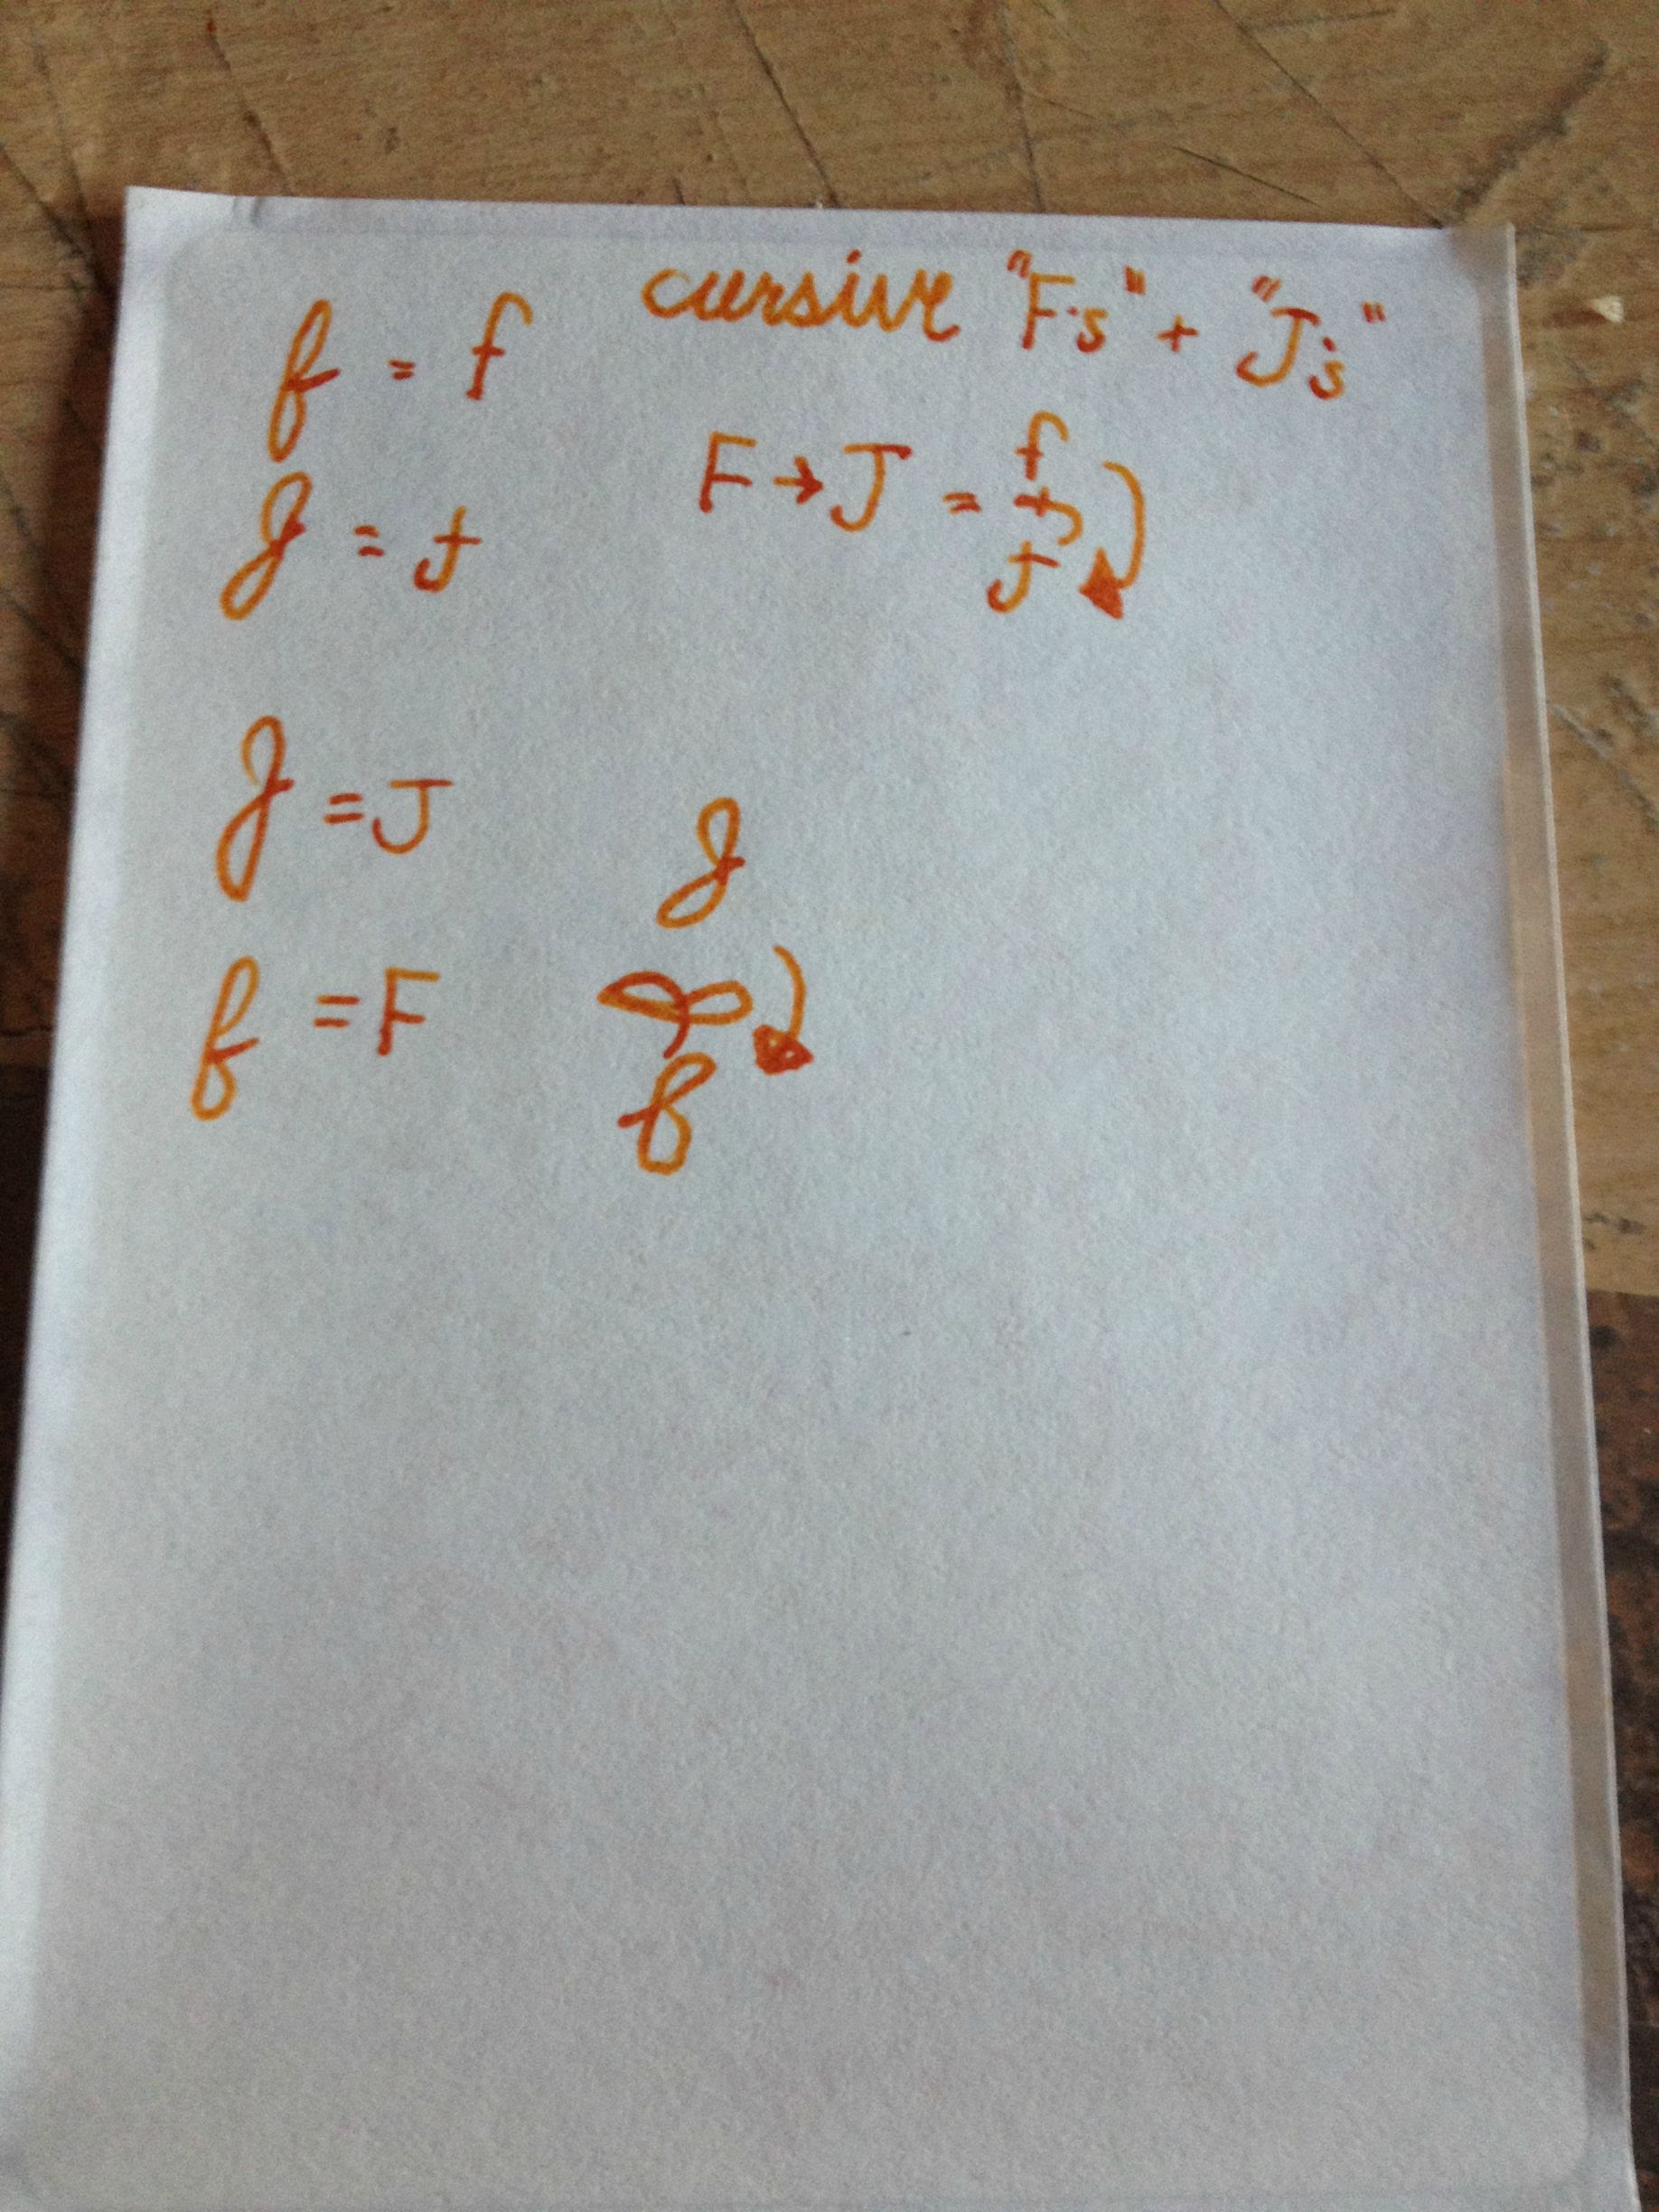 cursive "F's" + "J's"
f = f
F → J = f
J = J
J
J = J
f = F
J
f